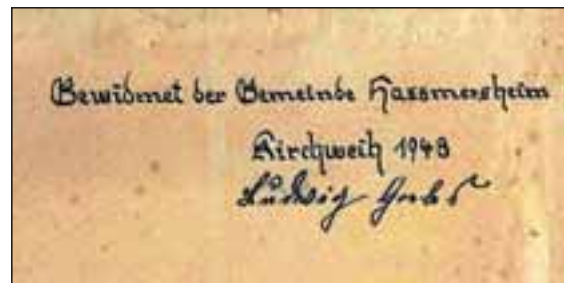 Gewidmet der Gemeinde Hassmersheim
Kirchweih 1948
Ludwig